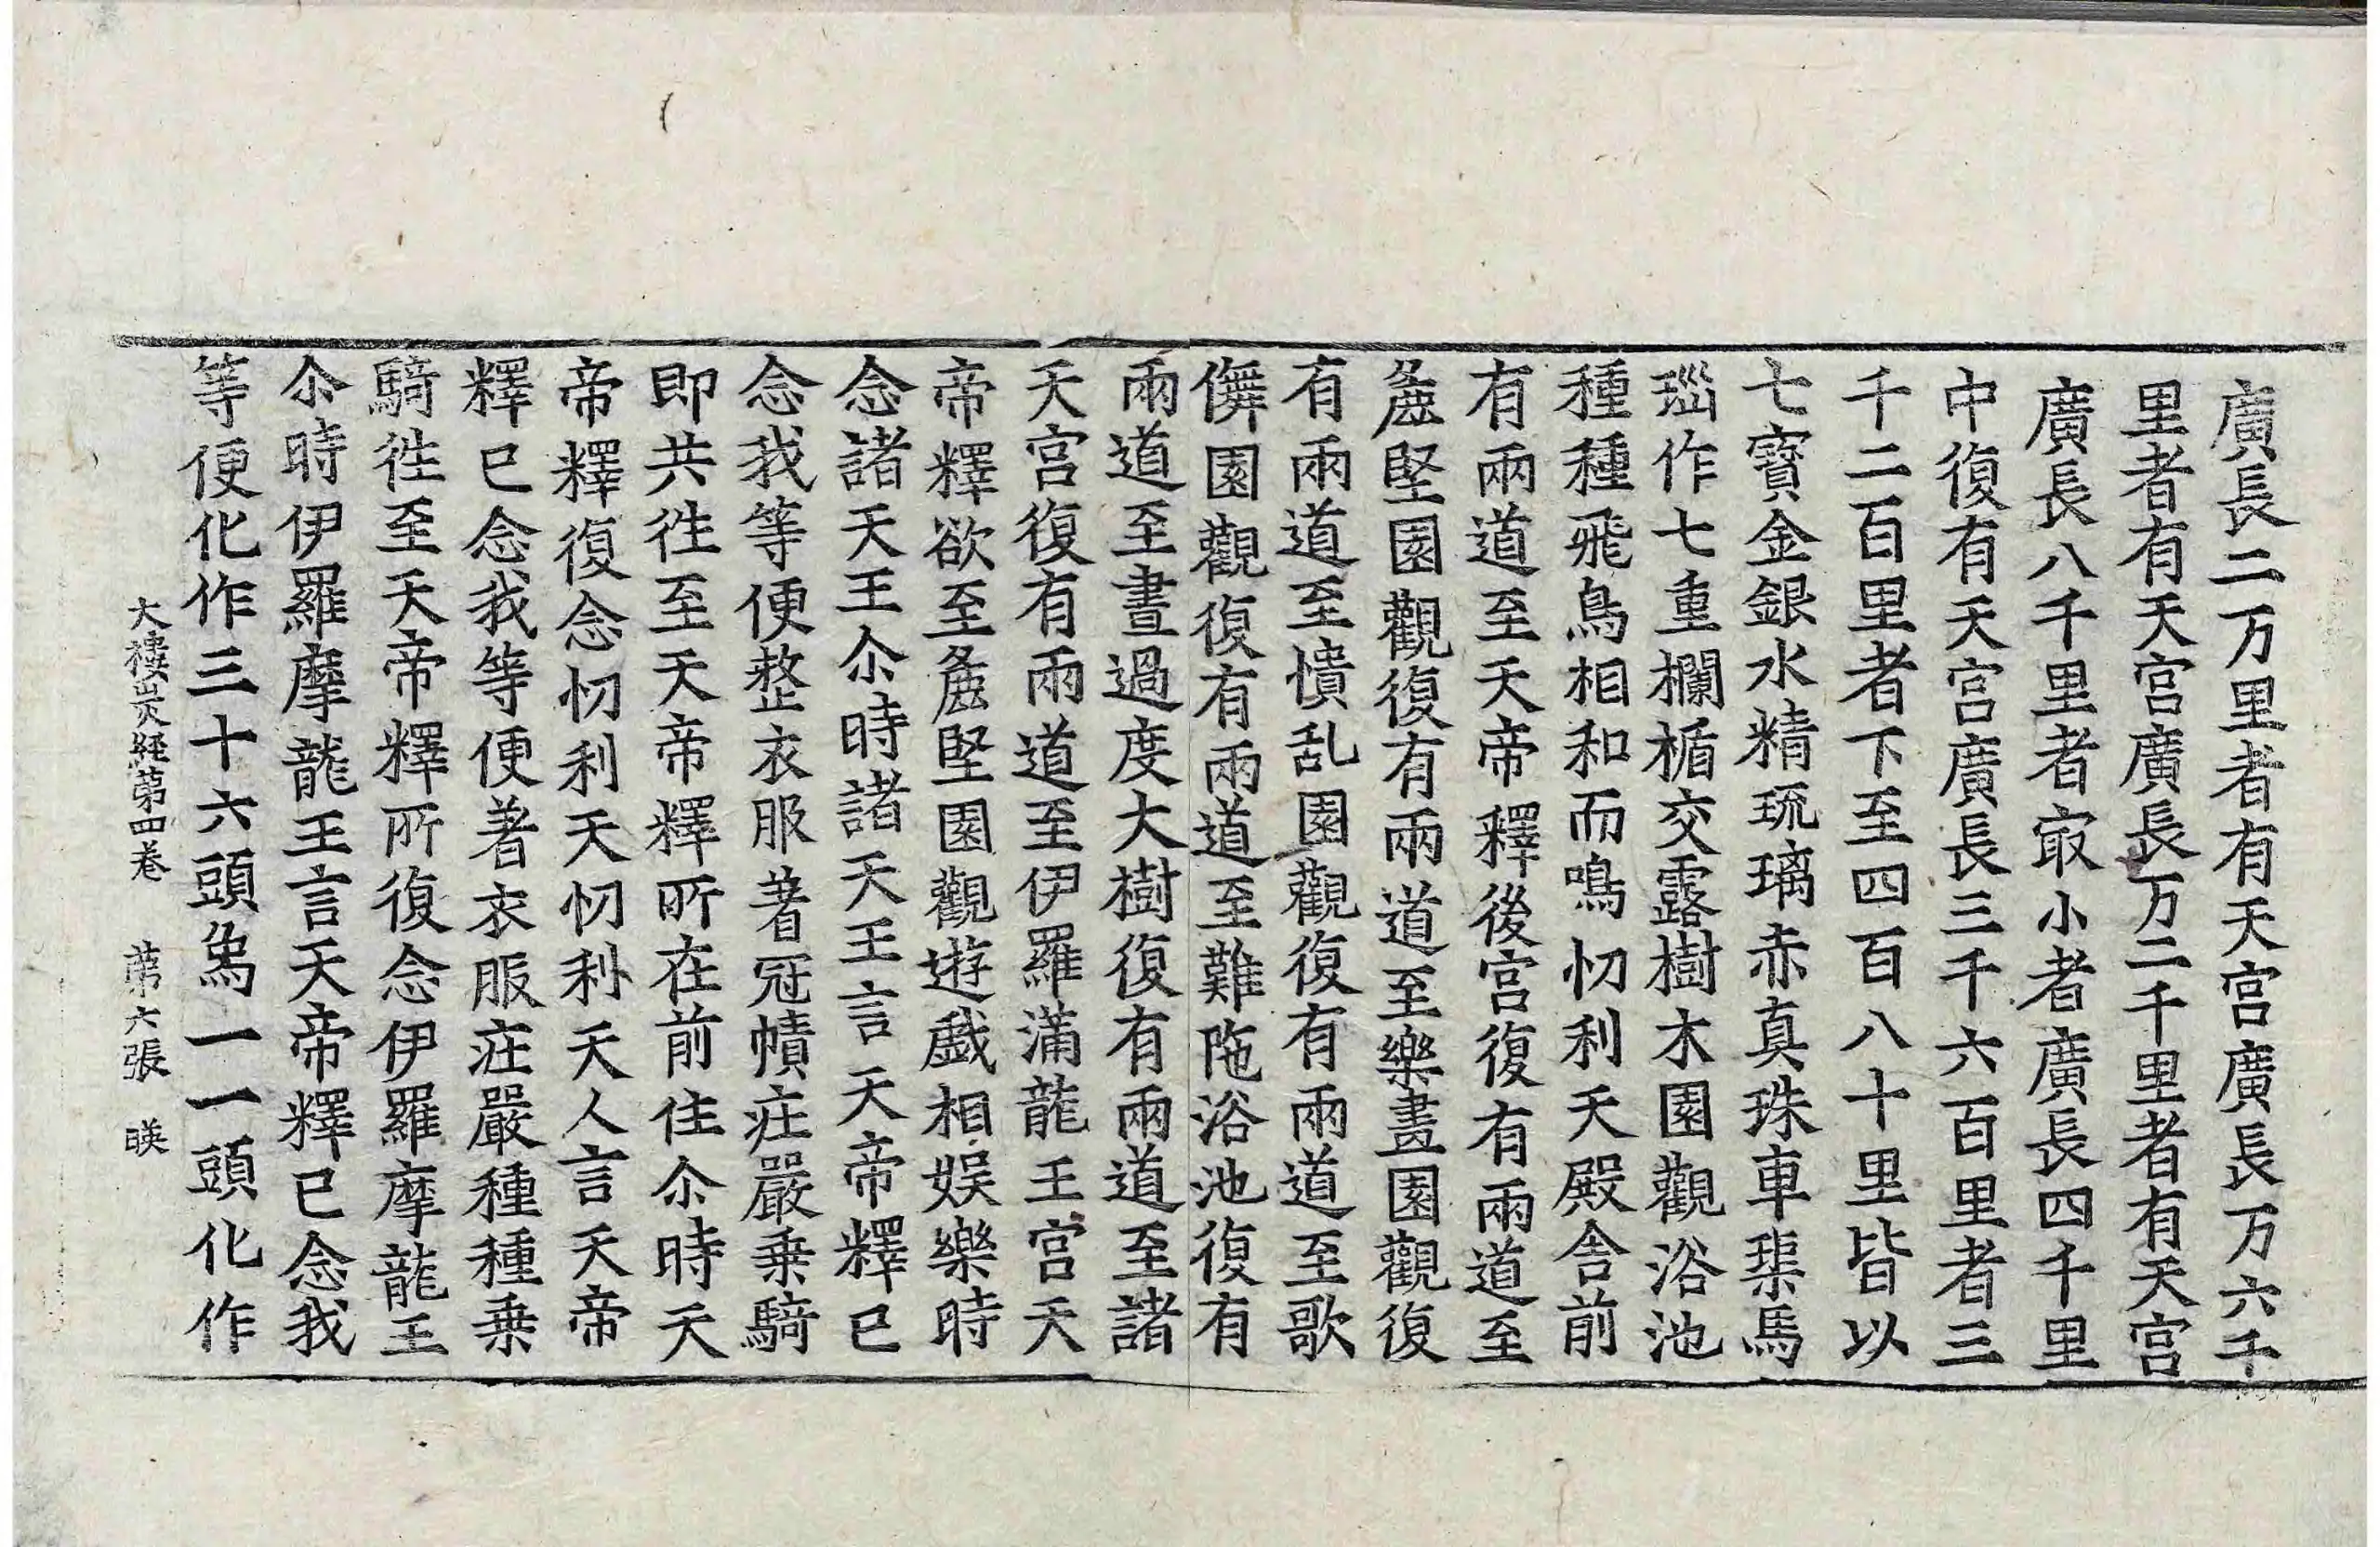 廣長二万里者有天宮廣長万六千
里者有天宮廣長万二千里者有天宮
廣長八千里者冣小者廣長四千里
中復有天宮廣長三千六百里者三
千二百里者下至四百八十里皆以
七寶金銀水精琉璃赤真珠車𤦲馬
瑙作七重欄楯交露樹木園觀浴池
種種飛鳥相和而鳴忉利天殿舍前
有兩道至天帝釋後宮復有兩道至
麁堅園觀復有兩道至樂畫園觀復
有兩道至憒乱園觀復有兩道至歌
儛園觀復有兩道至難陁浴池復有
兩道至晝過度大樹復有兩道至諸
天宮復有兩道至伊羅滿龍王宮天
帝釋欲至麁堅園觀遊戲相娛樂時
念諸天王尒時諸天王言天帝釋已
念我等便整衣服著冠幘庄嚴乗騎
即共徃至天帝釋所在前住尒時天
帝釋復念忉利天忉利天人言天帝
釋已念我等便著衣服庄嚴種種乗
騎徃至天帝釋所復念伊羅摩龍王
尒時伊羅摩龍王言天帝釋已念我
等便化作三十六頭象一一頭化作
大樓炭経第四卷　第六張　暎